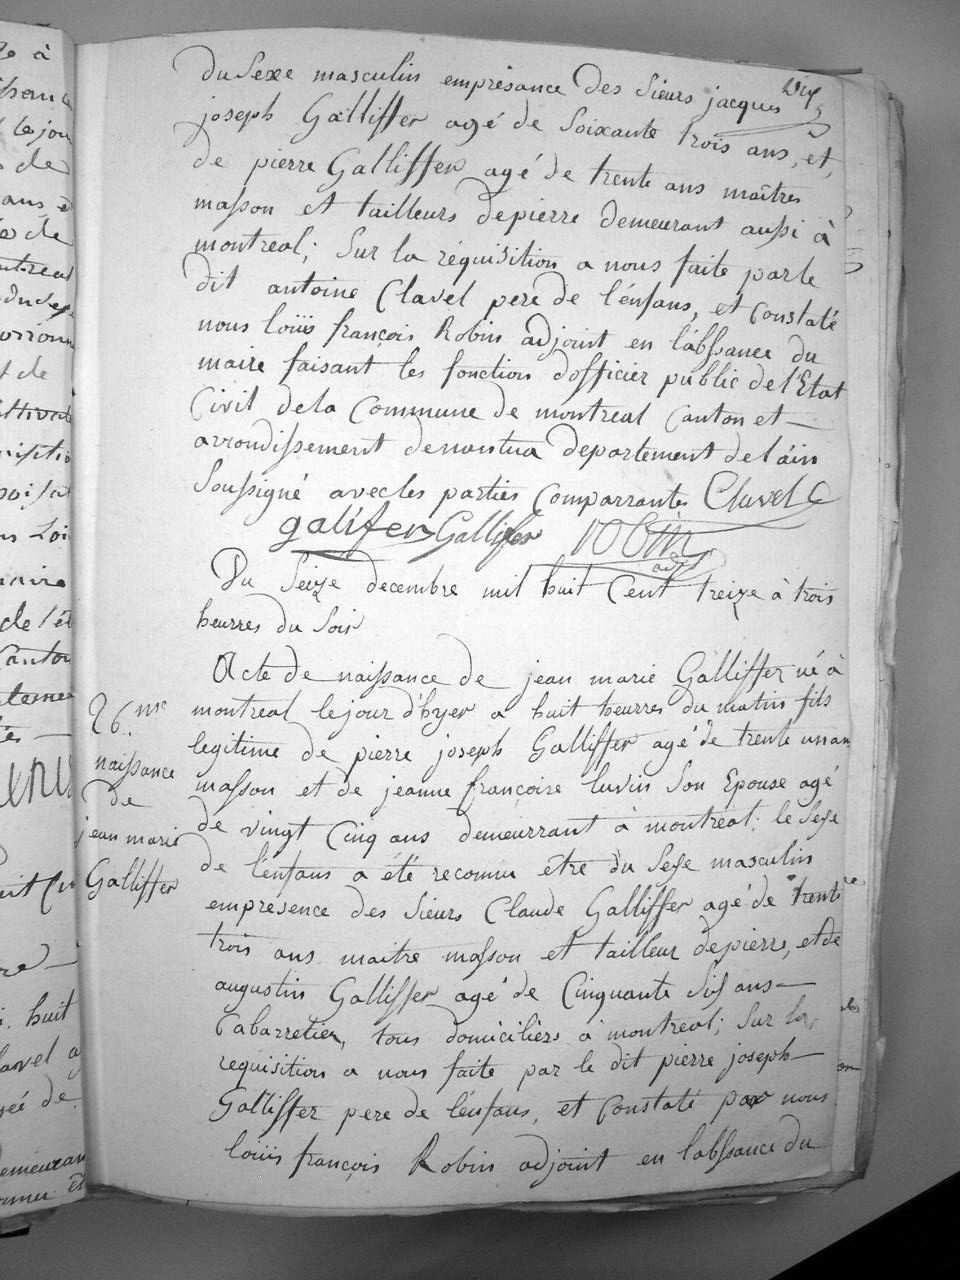 Dix
du Sexe masculin emprésance des Sieurs jacques
joseph Galliffer agé de Soixante trois ans, et,
de pierre Galliffer agé de trente ans maîtres
masson et tailleurs depierre demeurant aussi à
montreal; Sur la réquisition a nous faite parle
dit antoine Clavel pere de l'énfans, et Constaté
nous loüis françois Robin adjoint en l'abssance du
maire faisant les fonction d'officier public de l'Etat
Civil dela Commune de montreal Canton et
arrondissement denantua departement del'áin
Soussigné avecles parties Comparrante Clavel
galifer Galliffer robin
adj
Du Seize decembre mil huit Cent treize à trois
heurres du Soir
Acte de naissance de jean marie Galliffer né à
montreal lejour d'hyer a huit heurres du matin fils
legitime de pierre joseph Galliffer agé de trente un an
masson et de jeanne françoise luvin Son Epouse agé
de vingt Cinq ans demeurrant à montreal; le Sexe
de l'énfans a été reconnu être du Sexe masculin
empresence des Sieurs Claude Galliffer agé de trente
trois ans maitre masson et tailleur depierre, et de
augustin Galliffer agé de Cinquante Six ans
Cabarretier, tous domiciliers à montreal; Sur la
requisition a nous faite par le dit pierre joseph
Galliffer pere de l'énfans, et Constaté par nous
loüis françois Robin adjoint en l'abssance du
26.me
naissance
de
jean marie
Galliffer